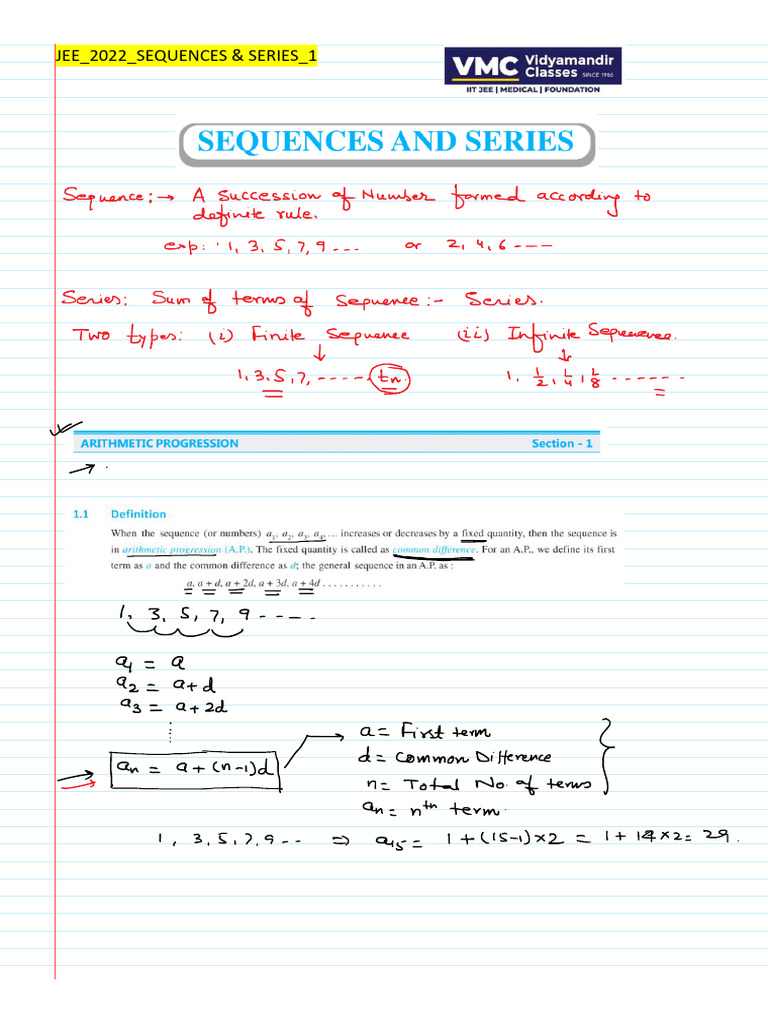 JEE_2022_SEQUENCES & SERIES_1
VMC Vidyamandir Classes SINCE 1986
IIT JEE | MEDICAL | FOUNDATION
SEQUENCES AND SERIES
Sequence:→ A succession of Number formed according to
definite rule.
exp: 1, 3, 5, 7, 9 --- or 2, 4, 6 ----
Series: Sum of terms of sequence:- Series.
Two types: (i) Finite Sequence (ii) Infinite Sequence.
↓ ↓
1, 3, 5, 7, ------ tn. 1, 1/2, 1/4, 1/8 -------
ARITHMETIC PROGRESSION Section - 1
→ .
1.1 Definition
When the sequence (or numbers) a₁, a₂, a₃, a₄, ... increases or decreases by a fixed quantity, then the sequence is
in arithmetic progression (A.P.). The fixed quantity is called as common difference. For an A.P., we define its first
term as a and the common difference as d; the general sequence in an A.P. as :
a, a + d, a + 2d, a + 3d, a + 4d . . . . . . . . . . .
1, 3, 5, 7, 9 -----
a₁ = a
a₂ = a+d
a₃ = a+2d
⋮
aₙ = a+(n-1)d
→ a = First term
d = Common Difference
n = Total No. of terms
aₙ = nᵗʰ term.
1, 3, 5, 7, 9 -- ⇒ a₁₅ = 1+(15-1)×2 = 1+14×2 = 29.